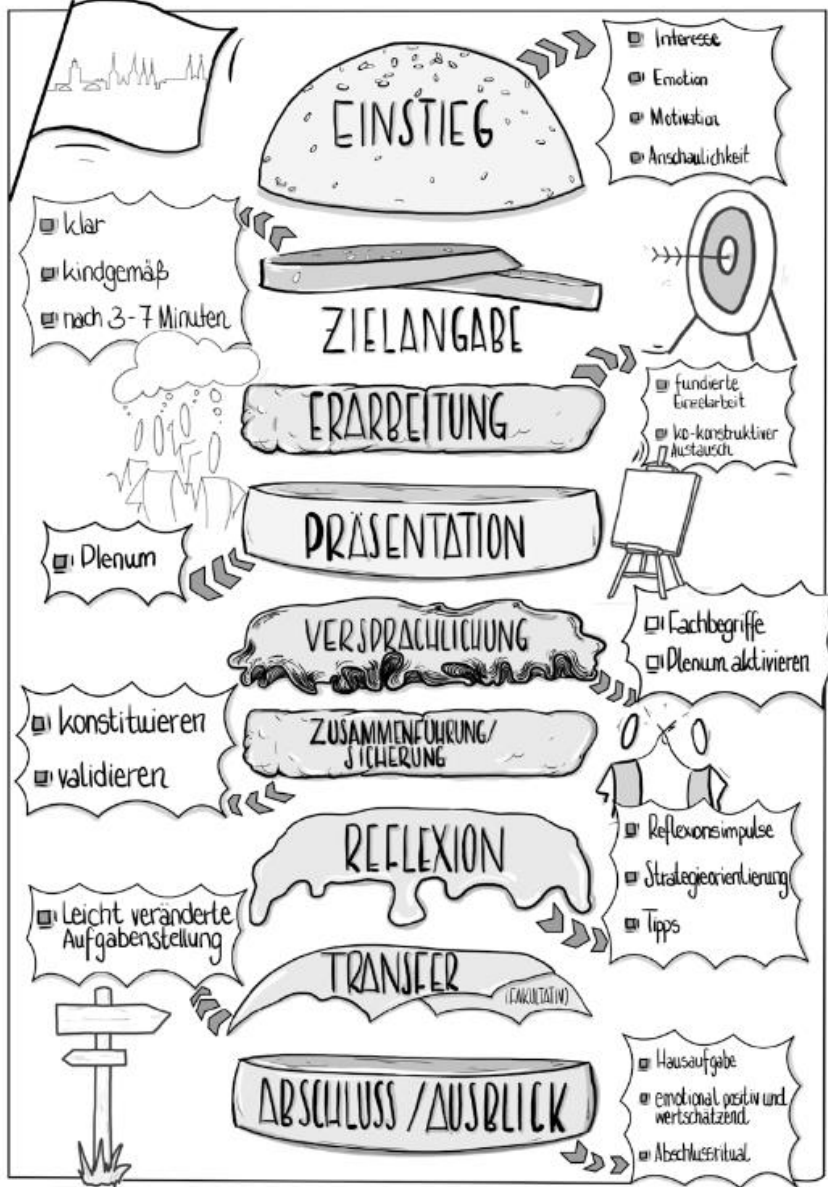 EINSTIEG
Interesse
Emotion
Motivation
Anschaulichkeit
klar
kindgemäß
nach 3-7 Minuten
ZIELANGABE
ERARBEITUNG
fundierte
Einzelarbeit
ko-konstruktiver
Austausch
PRÄSENTATION
Plenum
VERSPRACHLICHUNG
Fachbegriffe
Plenum aktivieren
konstituieren
validieren
ZUSAMMENFÜHRUNG/
SICHERUNG
REFLEXION
Reflexionsimpulse
Strategieorientierung
Tipps
Leicht veränderte
Aufgabenstellung
TRANSFER
(FAKULTATIV)
ABSCHLUSS / AUSBLICK
Hausaufgabe
emotional positiv und
wertschätzend
Abschlussritual